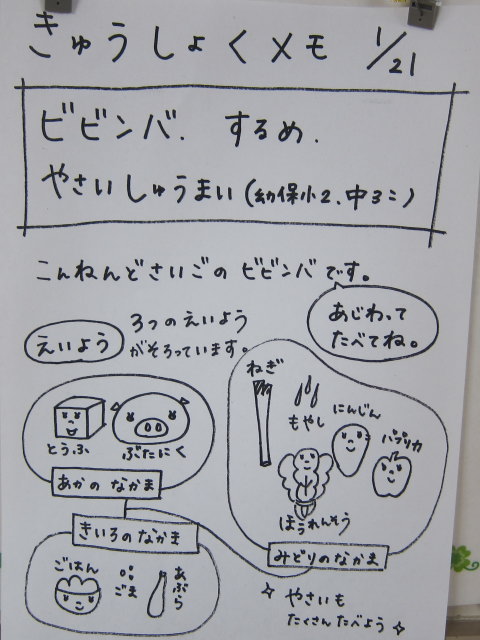 きゅうしょくメモ 1/21
ビビンバ. するめ.
やさいしゅうまい(幼保小2、中3こ)
こんねんどさいごの ビビンバです。
あじわって
たべてね。
えいよう
3つのえいよう
がそろっています。
とうふ
ぶたにく
あかのなかま
ねぎ
もやし
にんじん
パプリカ
ほうれんそう
みどりのなかま
きいろのなかま
ごはん
ごま
あぶら
やさいも
たくさんたべよう